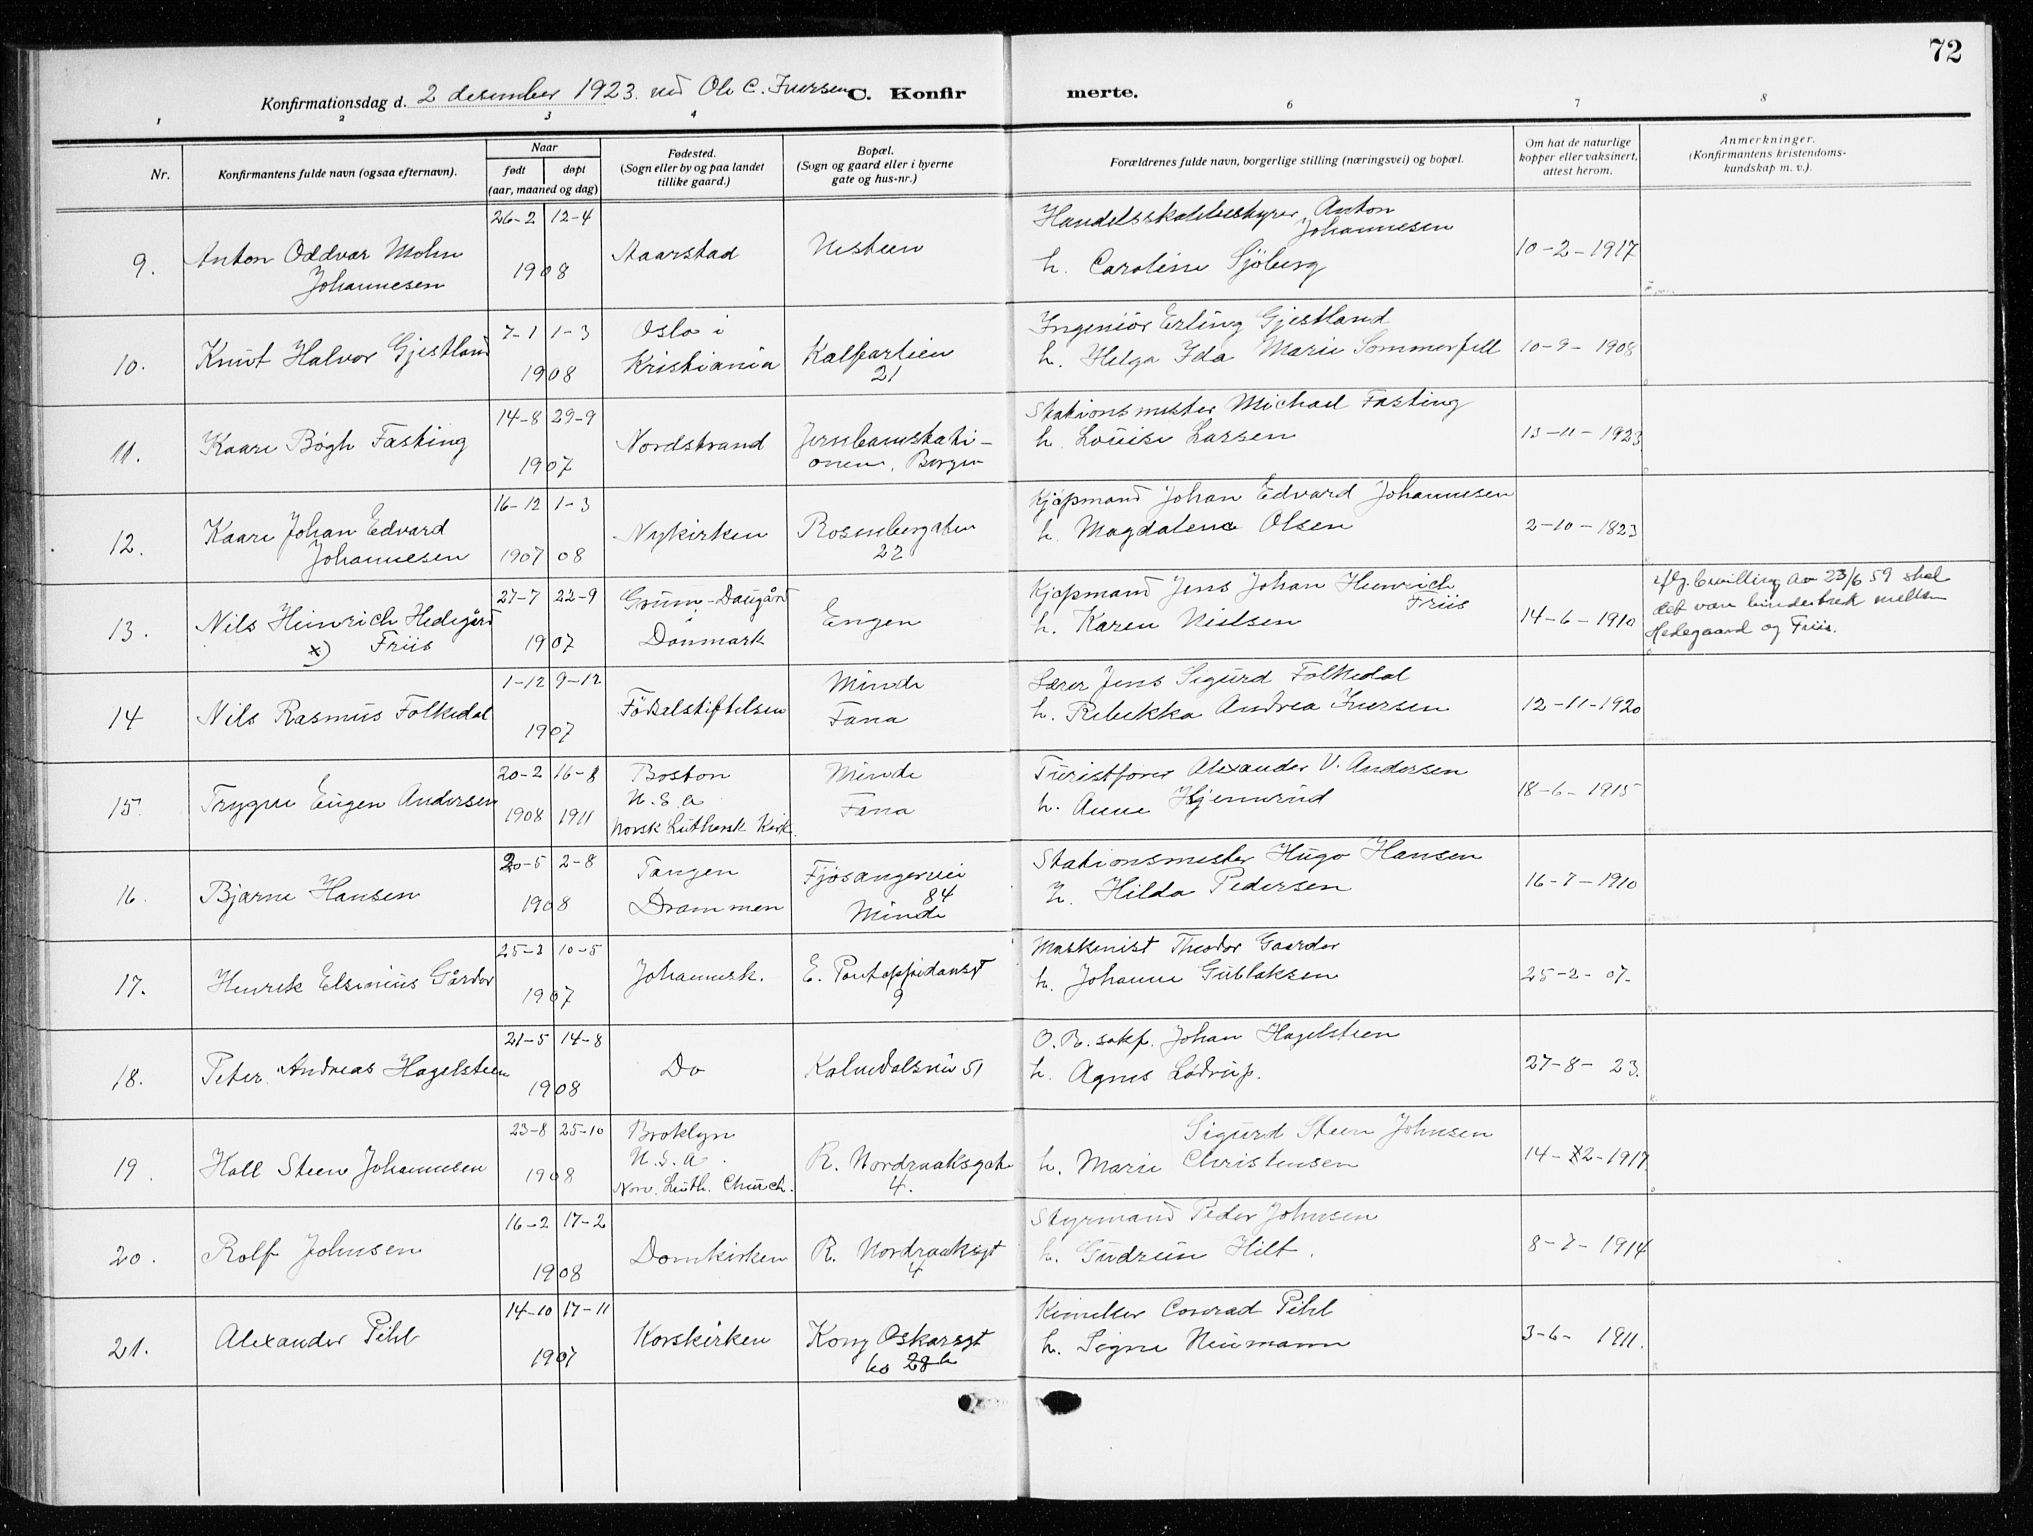 72
Konfirmationsdag d. 2 desember 1923. ved Ole C. Iversen C. Konfirmerte.
1 2 3 4 6 7 8
Nr.
Konfirmantens fulde navn (ogsaa efternavn).
Naar
født døpt
(aar, maaned og dag)
Fødested.
(Sogn eller by og paa landet
tillike gaard.)
Bopæl.
(Sogn og gaard eller i byerne
gate og hus-nr.)
Forældrenes fulde navn, borgerlige stilling (næringsvei) og bopæl.
Om hat de naturlige
kopper eller vaksinert,
attest herom.
Anmerkninger.
(Konfirmantens kristendoms-
kundskap m. v.).
9. Anton Oddvar Mohn
Johannesen
26-2 12-4
1908
Aarstad
Nesteen
Anton
Johannesen
h. Caroline Sjøberg
10-2-1917
10. Knut Halvor Gjestland
7-1 1-3
1908
Oslo i
Kristiania
Kalfarlien
21
Ingeniör Erling Gjestland
h. Helga Ida Marie Sommerfell
10-9-1908
11. Kaare Bøgh Fasting
14-8 29-9
1907
Nordstrand
Jernbanestati-
onen, Bergen
Stationsmester Michael Fasting
h. Louise Larsen
13-11-1923
12. Kaare Johan Edvard
Johannesen
16-12 1-3
1907 08
Nykirken
Rosenbergaten
22
Kjøpmand Johan Edvard Johannesen
h. Magdalene Olsen
2-10-1823
13. Nils Heinrich Hedegård
x) Friis
27-7 22-9
1907
Grum-Daugård
Danmark
Engen
Kjøpmand Jens Johan Henrich
Friis
h. Karen Nielsen
14-6-1910
iflg. bevilling av 23/6 59 skal
det være bindestrek mellem
Hedegaard og Friis.
14 Nils Rasmus Folkedal
1-12 9-12
1907
Födselstiftelsen
Minde
Fana
Lærer Jens Sigurd Folkedal
h. Rebekka Andrea Iversen
12-11-1920
15. Trygve Eugen Andersen
20-2 16-8
1908 1911
Boston
U.S.A
Norsk Luthersk Kirk.
Minde
Fana
Turistfører Alexander V. Andersen
h. Anne Hjemerud
18-6-1915
16. Bjarne Hansen
20-5 2-8
1908
Tangen
Drammen
Fjösangervei
84
Minde
Stationsmester Hugo Hansen
h. Hilda Pedersen
16-7-1910
17. Henrik Elsenius Gårder
25-3 10-5
1907
Johannesk.
E. Pontoppidansgt
9
Maskinist Theodor Gaarder
h. Johanne Gublaksen
25-2-07.
18. Peter Andreas Hagelsteen
21-5 14-8
1908
Do
Kalvedalsvei 51
O. R. sakf. Johan Hagelsteen
h. Agnes Lødrup.
27-8-23.
19. Hall Steen Johannesen
23-8 25-10
1908
Broklyn
U.S.A.
Norv. Luth. Church.
R. Nordraaksgate
4.
Sigurd Steen Johnsen
h. Marie Christensen
14-12-1917
20. Rolf Johnsen
16-2 17-2
1908
Domkirken
R. Nordraaksgt
4
Styrmand Peder Johnsen
h. Gudrun Hilt.
8-7-1914
21. Alexander Pihl
14-10 17-11
1907
Korskirken
Kong Oskarsgt
28
Conrad Pihl
h. Signe Neumann
3-6-1911.